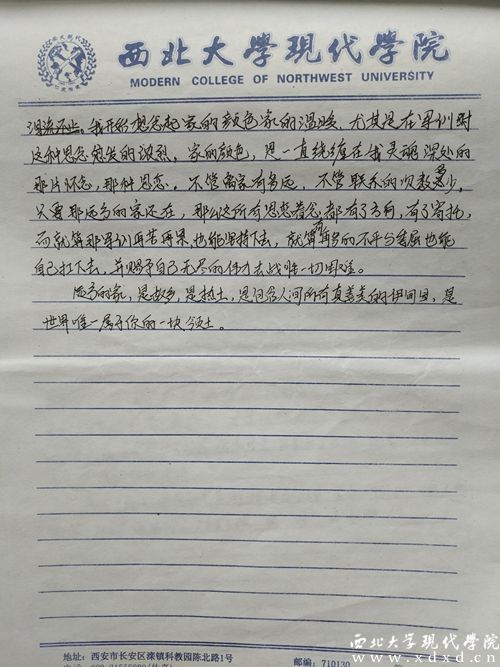 西北大學現代學院
MODERN COLLEGE OF NORTHWEST UNIVERSITY
流不止。我开始想念起家的颜色家的温暖,尤其是在军训时
这种思念愈发的浓烈。家的颜色,是一直缠在我灵魂深处的
那片怀念,那份思恋。不管离家有多远,不管联系的次数多少,
只要那远方的家还在,那么这所有思恋眷念都有了方向,有了寄托,
而就算那军训再苦再累,也能坚持下去,就算有再多的不平与委屈也能
自己扛下去,并赐予自己无尽的伟力去战胜一切困难。
远方的家,是故乡,是热土,是包含人间所有真善美的,是
世界唯一属于你的一块领土。
地址:西安市长安区滦镇科教园陈北路1号
邮编:710130
西北大学现代学院
www.xdxd.cn